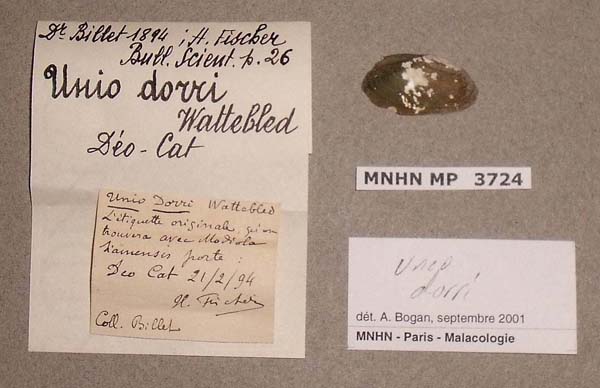 Dr Billet 1894 ; H. Fischer
Bull. Scient. p. 26
Unio dorri
Wattebled
Déo-Cat
Unio Dorri Wattebled
L'étiquette originale, qu'on
trouvera avec Modiola
siamensis porte :
Déo Cat 21/2/94
H. Fischer
Coll. Billet
MNHN MP 3724
Unio
dorri
dét. A. Bogan, septembre 2001
MNHN - Paris - Malacologie